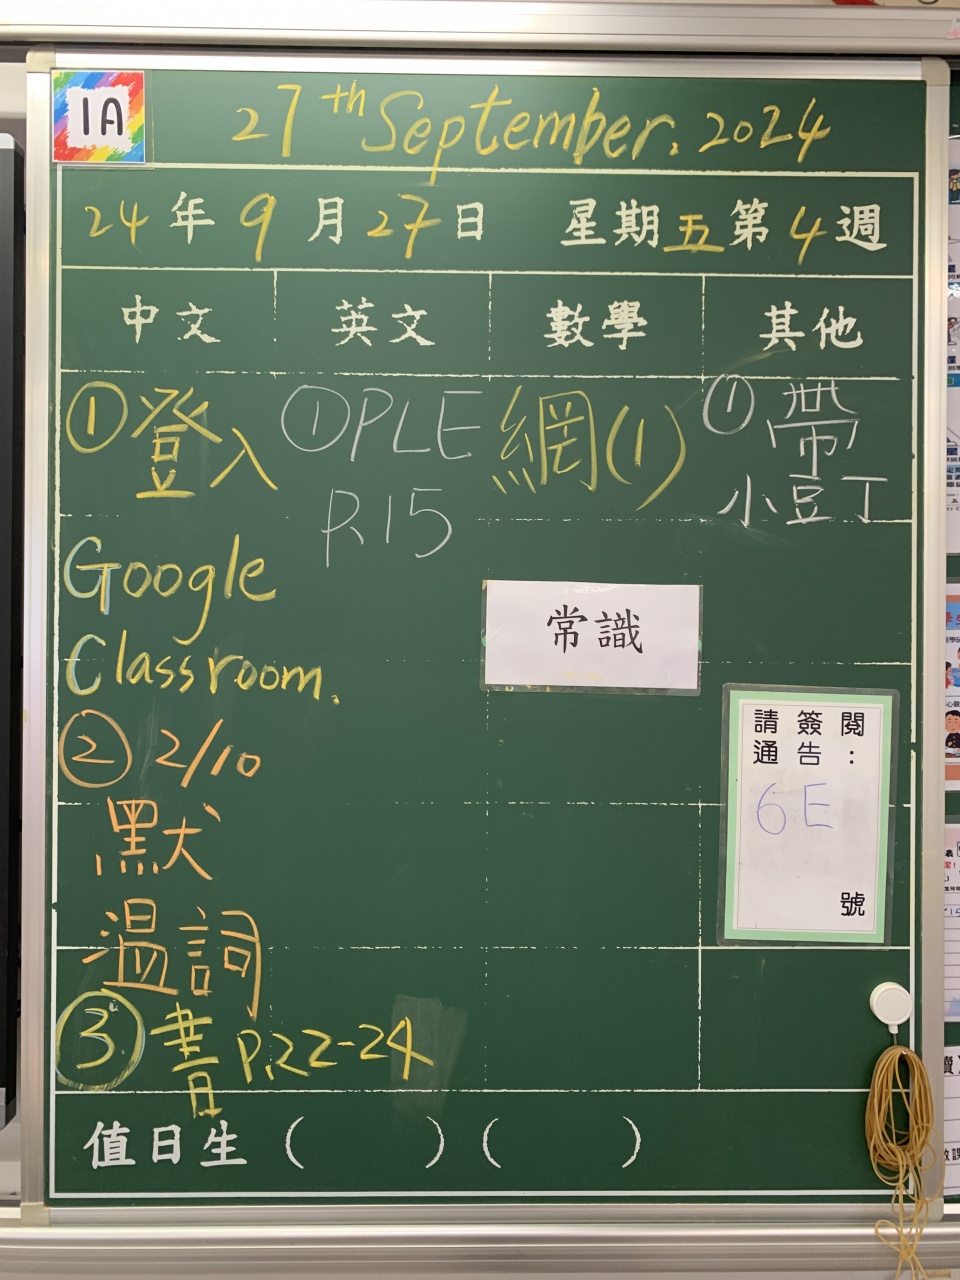 1A
27th September, 2024
24年9月27日 星期五第4週
中文 英文 數學 其他
①登入
Google
Classroom.
②2/10
默
溫詞
③書P.22-24
①PLE
P.15
網(1)
常識
①帶
小豆丁
請簽閱
通告:
6E
號
值日生( )( )